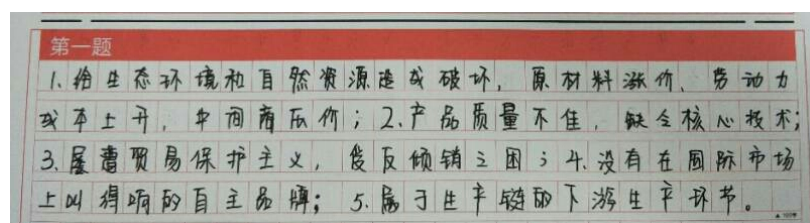 第一题
1.给生态环境和自然资源造成破坏，原材料涨价、劳动力
成本上升，中间商压价；2.产品质量不佳，缺乏核心技术；
3.屡遭贸易保护主义，受反倾销之困；4.没有在国际市场
上叫得响的自主品牌；5.属于生产链的下游生产环节。